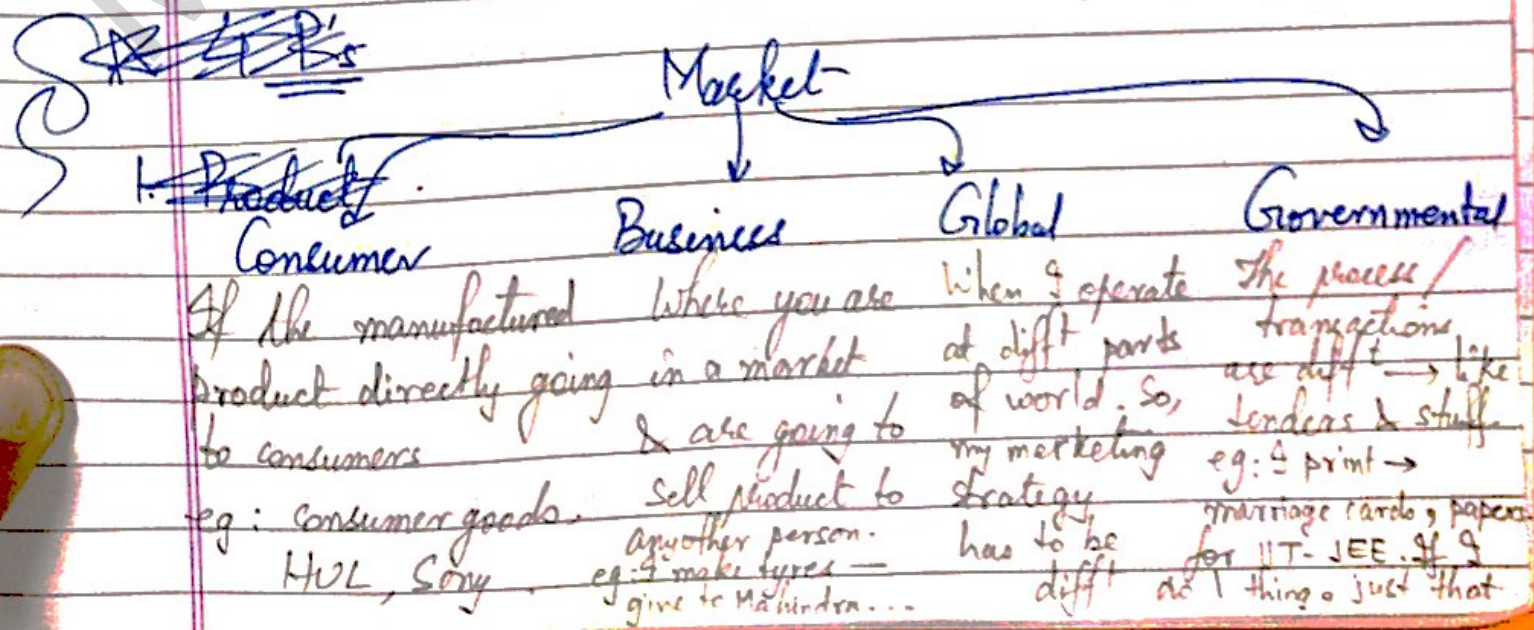 4P's
Market
1. Product
Consumer Business Global Governmental
If the manufactured
product directly going
to consumers
eg: consumer goods.
HUL, Sony.
Where you are
in a market
& are going to
sell product to
anyother person.
eg: I make tyres —
give to Mahindra...
When I operate
at difft parts
of world. So,
my marketing
strategy
has to be
difft
The process/
transactions
are difft → like
tenders & stuff.
eg: I print →
marriage cards, papers
for IIT-JEE. If I
do 1 thing, just that